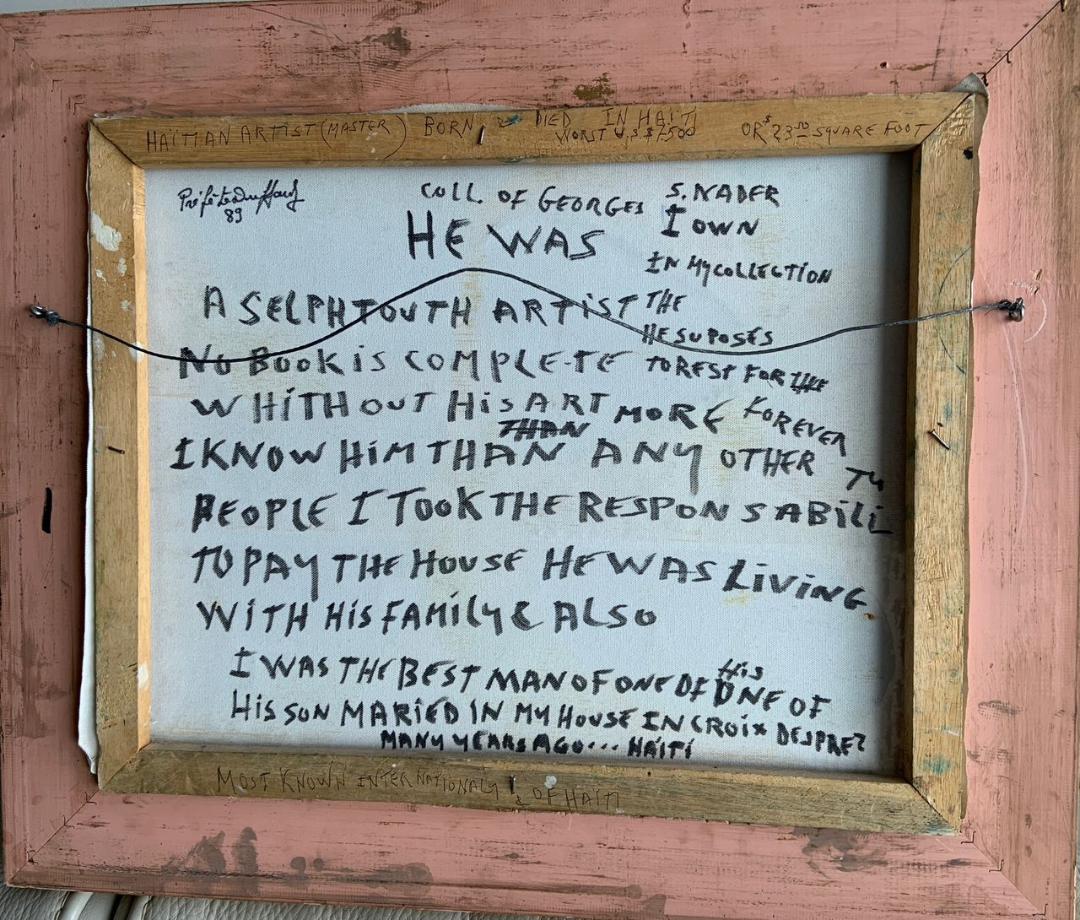 HAITIAN ARTIST (MASTER) BORN & DIED IN HAITI
WORST U.S $7500 OR $23.50 SQUARE FOOT
Préfète Duffaut
89
COLL. OF GEORGES S. NADER
HE WAS I OWN
IN MY COLLECTION
A SELPHTOUTH ARTIST THE
HE SUPOSES
NO BOOK IS COMPLE-TE TO REST FOR THE
WHITHOUT HIS ART MORE FOREVER
THAN
I KNOW HIM THAN ANY OTHER
PEOPLE I TOOK THE RESPONSABILI TY
TO PAY THE HOUSE HE WAS LIVING
WITH HIS FAMILY & ALSO
I WAS THE BEST MAN OF ONE OF HIS ONE OF
HIS SON MARIED IN MY HOUSE IN CROIX DESPREZ
MANY YEARS AGO... HAITI
MOST KNOWN INTERNATIONALY OF HAITI